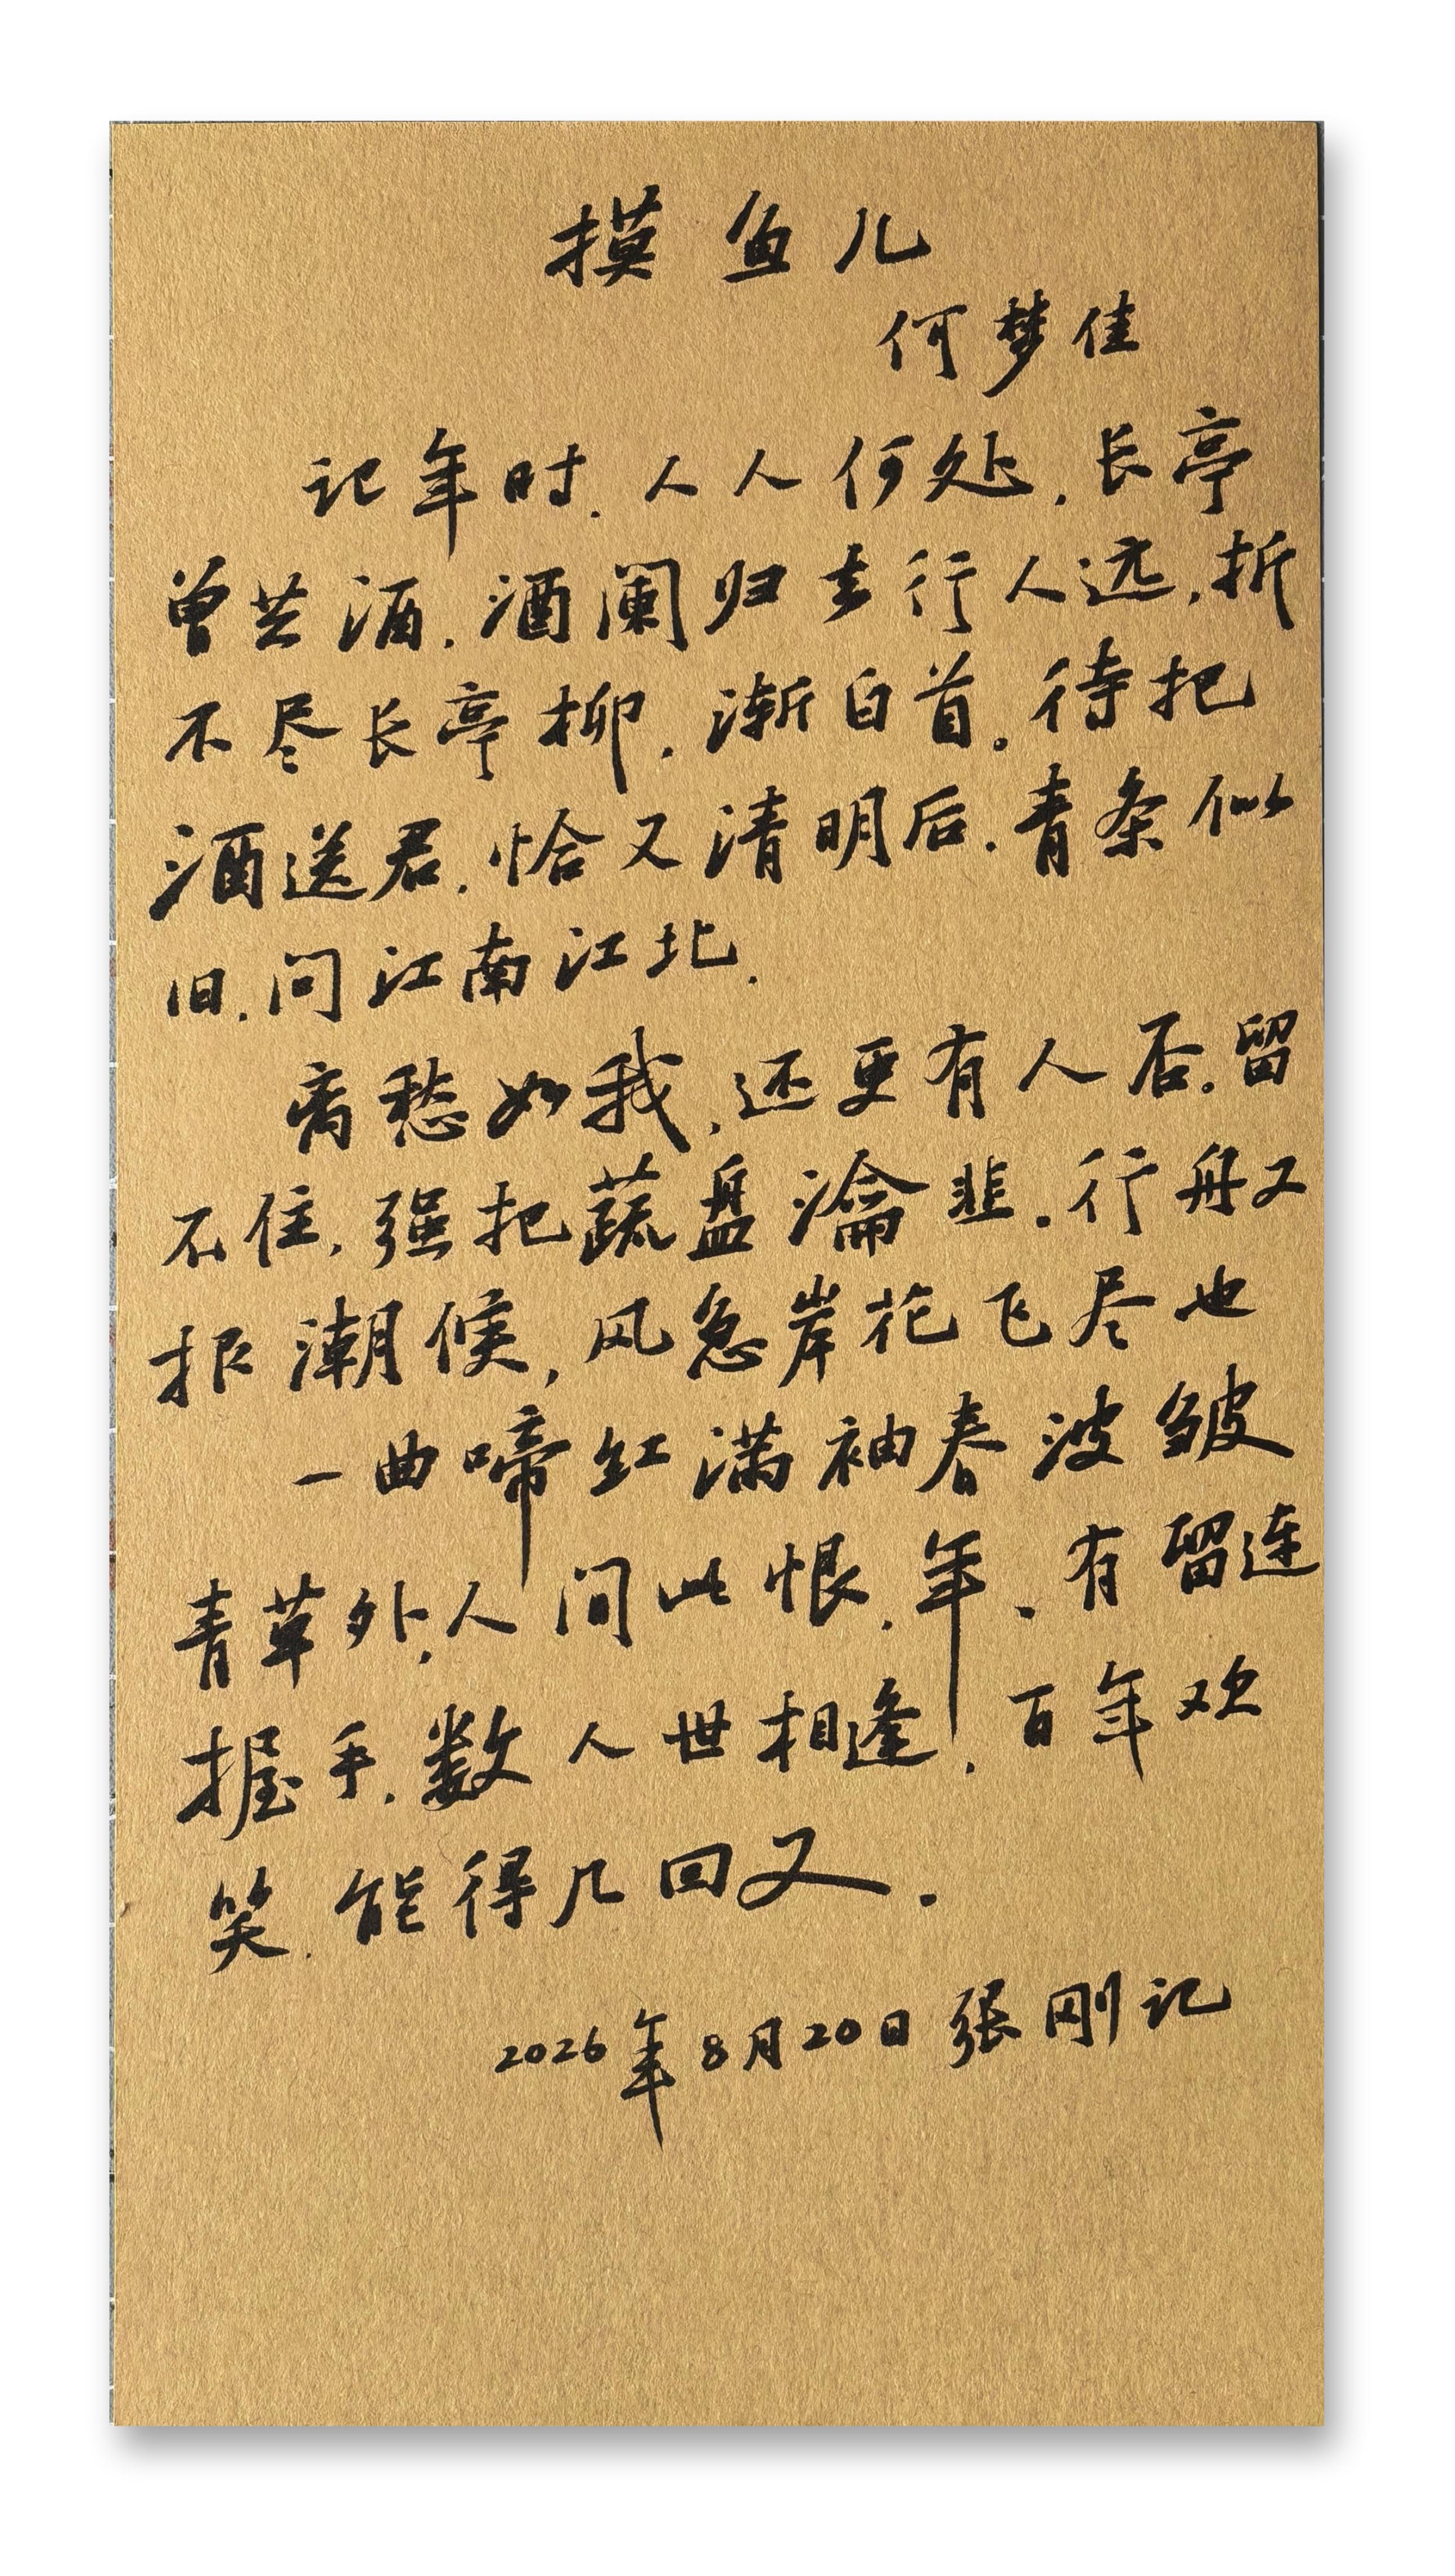 摸鱼儿
何梦佳
记年时.人人何处,长亭
曾共酒.酒阑归去行人远,折
不尽长亭柳.渐白首。待把
酒送君.恰又清明后.青条似
旧.问江南江北.
离愁如我,还更有人否。留
不住,强把蔬盘瀹韭.行舟又
报潮候,风急岸花飞尽也
一曲啼红满袖春波皱
青草外,人间此恨.年、有留连
握手.数人世相逢.百年欢
笑.能得几回又.
2026年8月20日张刚记